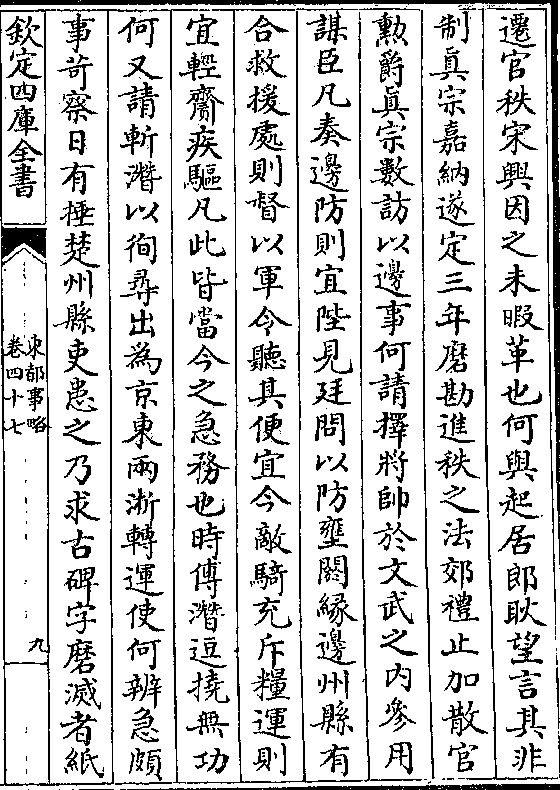 遷官秩宋興因之未暇革也何與起居郎耿望言其非
制真宗嘉納遂定三年磨勘進秩之法郊禮止加散官
勲爵真宗數訪以邊事何請擇將帥於文武之内參用
謀臣凡奏邊防則宜陛見廷問以防壅閼縁邊州縣有
合救援處則督以軍令聽其便宜今敵騎充斥糧運則
宜輕齎疾驅凡此皆當今之急務也時傅潛逗撓無功
何又請斬潛以徇尋出為京東兩浙轉運使何辨急頗
事苛察日有捶楚州縣吏患之乃求古碑字磨滅者紙
欽定四庫全書
東都事略
卷四十七
九